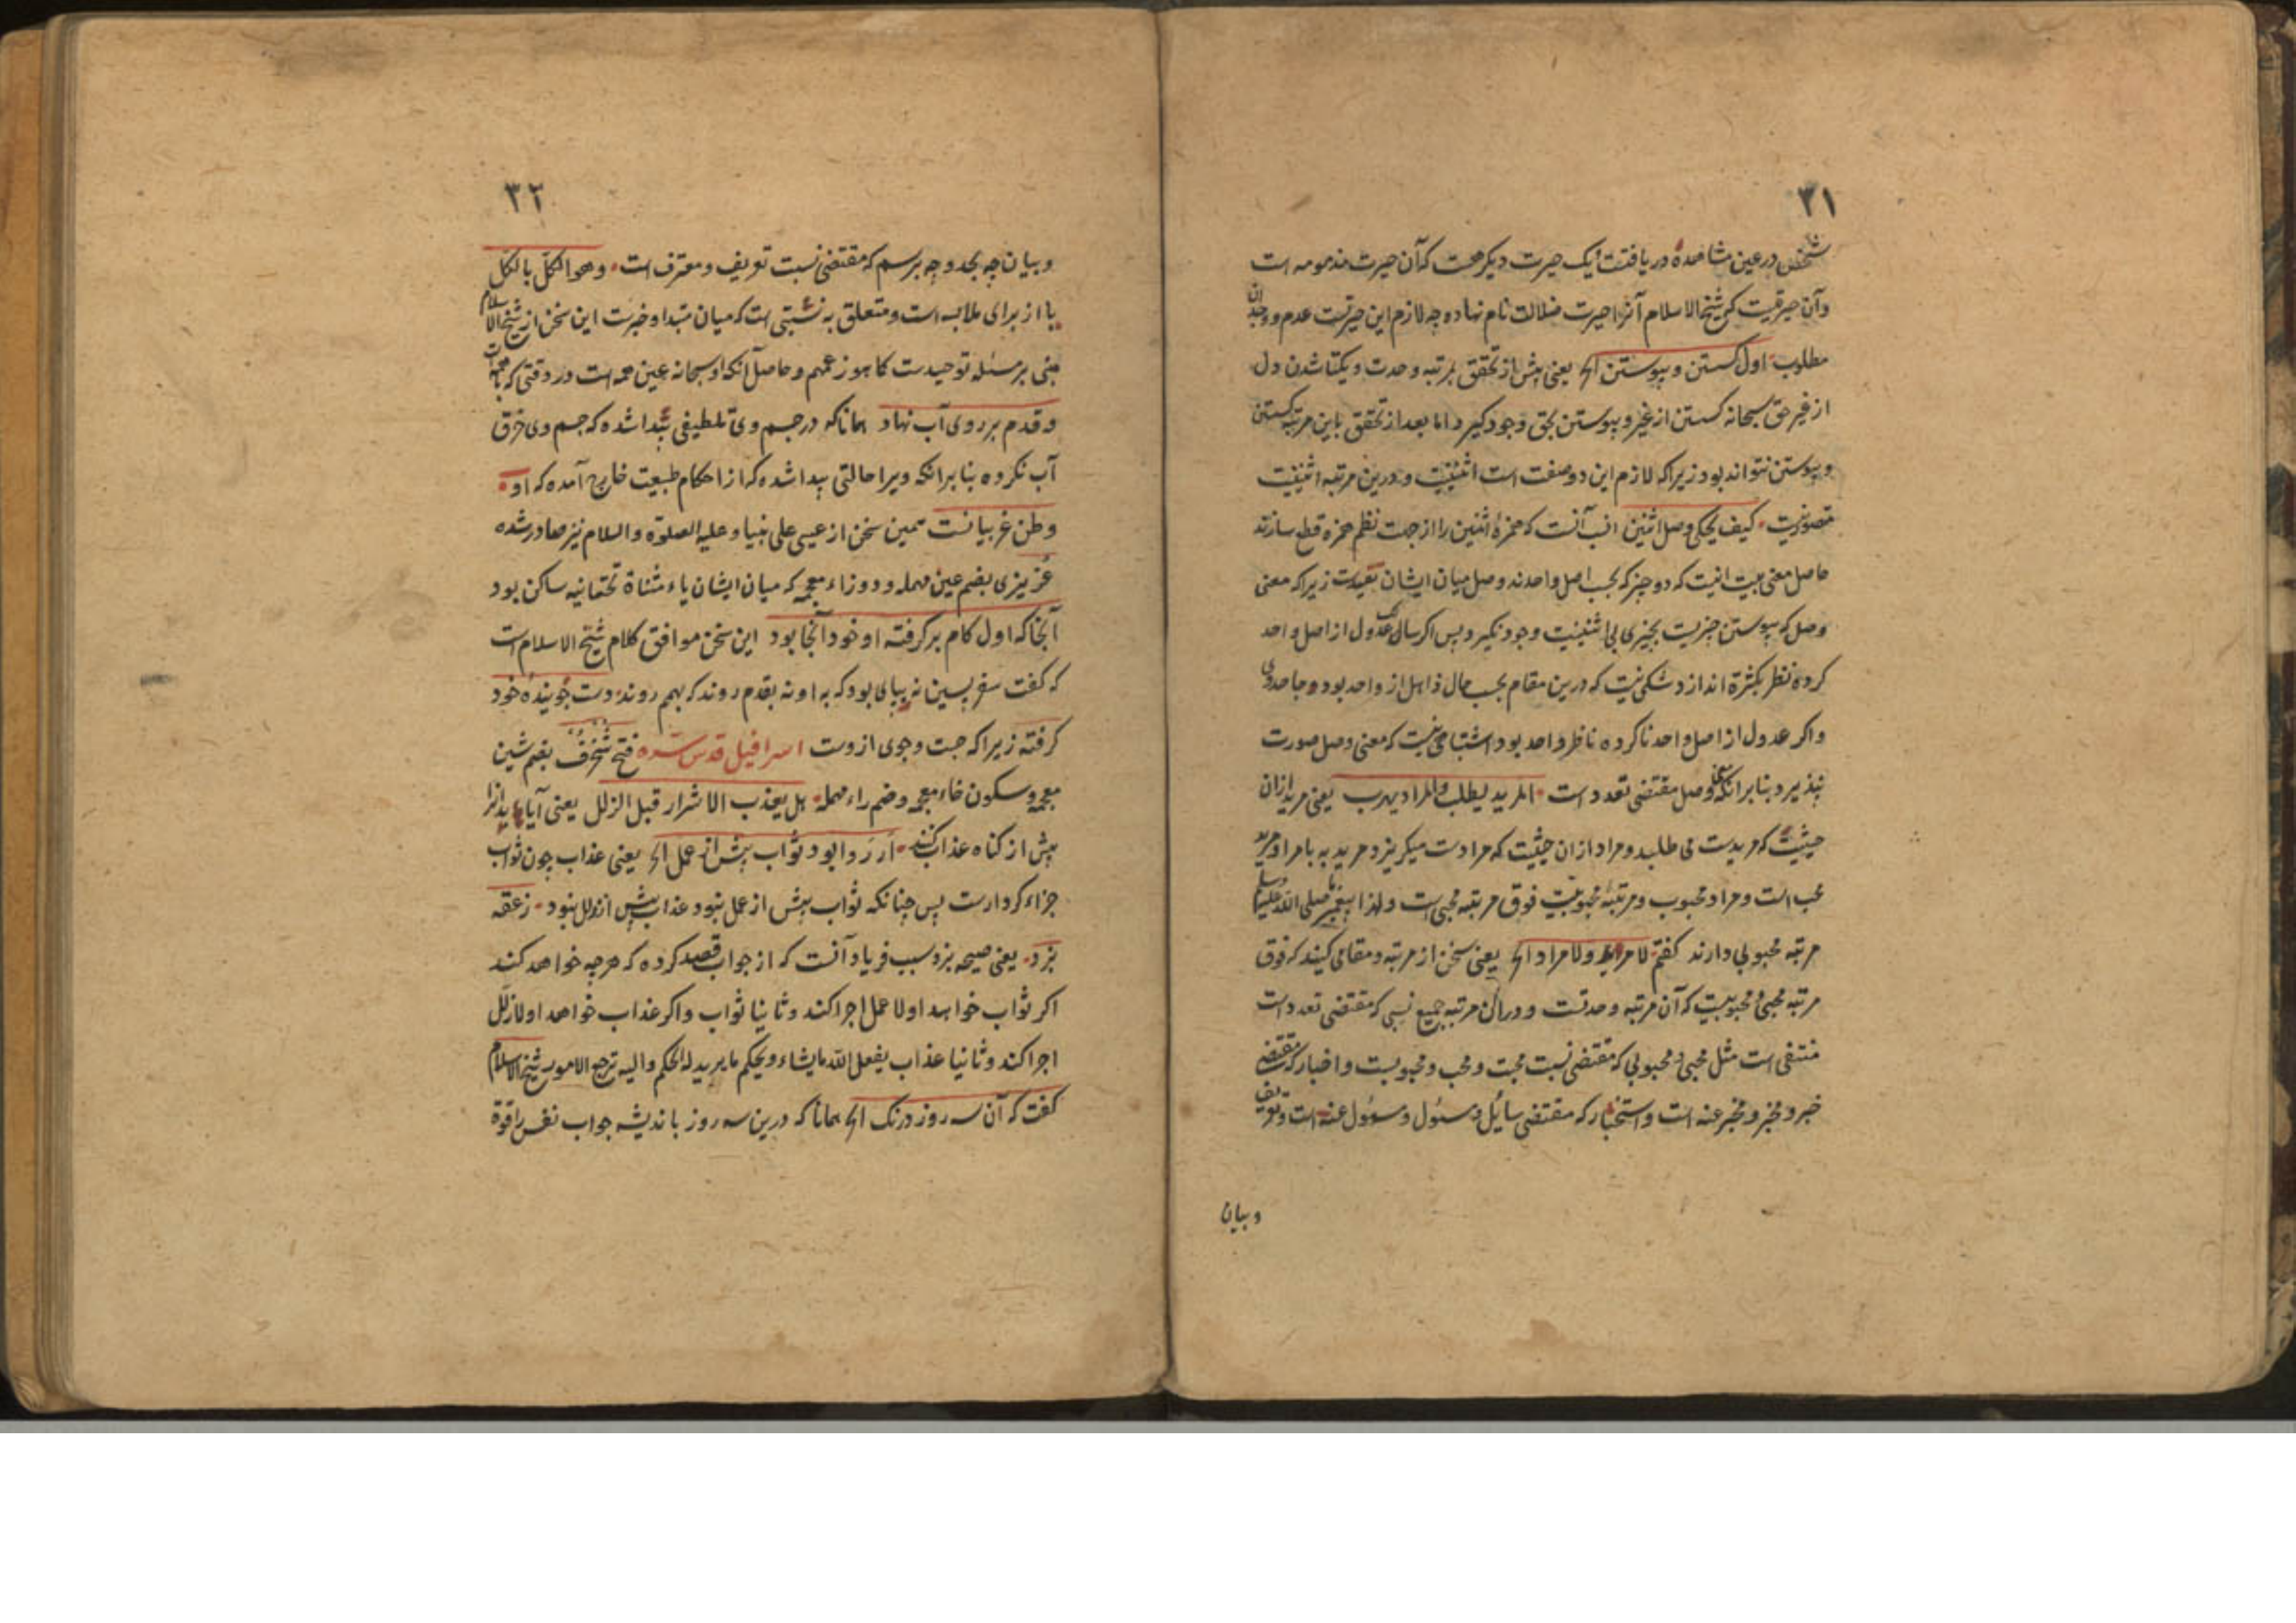 ۳۱
شخص در عین مشاهده دریافتست ایک حیرت دیکر هست که آن حیرت مذمومه است
وآن حیرتیست که شیخ الاسلام آنرا حیرت ضلالت نام نهاده چه لازم این حیرتست عدم وجدان
مطلوب اول کسستن و پیوستن الخ یعنی پیش از تحقق بمرتبه وحدت و یکتا شدن دل
از غیر حق سبحانه کسستن از غیر و پیوستن بحق وجود کیرد اما بعد از تحقق باین مرتبه کسستن
و پیوستن نتواند بود زیرا که لازم این دو صفت است اثنینیت و درین مرتبه اثنینیت
متصور نیست کیف یحکی وصل اثنین انسب آنست که همزهٔ اثنین را از جهت نظم همزه قطع سازند
حاصل معنی بیت اینست که دو چیز که بحسب اصل واحدند وصل میان ایشان نیست زیرا که معنی
وصل که پیوستن چیزیست بچیزی بی اثنینیت وجود نکیرد پس اکر سالک عدول از اصل واحد
کرده نظر بکثرة اندازد شکی نیست که درین مقام بحسب حال ذاهل از واحد بود و جاحد وی
واکر عدول از اصل واحد ناکرده ناظر واحد بود اشتباهی نیست که معنی وصل صورت
نپذیرد بنابر آنکه معنی وصل مقتضی تعدد است المرید یطلب والمراد یهرب یعنی مرید ازان
حیثیت که مریدست می طلبد و مراد ازان حیثیت که مرادست میکریزد مرید به بامراد مرید
محب است و مراد محبوب و مرتبهٔ محبوبیت فوق مرتبه محبی است ولهذا پیغمبر ما صلی الله علیه وسلم
مرتبه محبوبی دارند کفتم لا مرید ولا مراد الخ یعنی سخن از مرتبه و مقامی کنید که فوق
مرتبه محبی و محبوبیست که آن مرتبه وحدتست و دران مرتبه جمیع نسبی که مقتضی تعدد است
منتفی است مثل محبی و محبوبی که مقتضی نسبت محبت و محب و محبوبست و اخبار که مقتضی
خبر و مخبر و مخبر عنه است و استخبار که مقتضی سائل و مسئول و مسئول عنه است و تعریف
و بیان
۳۲
و بیان چه بحد و چه برسم که مقتضی نسبت تعریف و معرف است وهو الکل بالکل
با از برای ملابسه است و متعلق به نسبتی است که میان مبتدا و خبرست این سخن از شیخ الاسلام
مبنی بر مسئله توحیدست کما هو زعمهم و حاصل آنکه او سبحانه عین همه است در وقتی که با همه است
و قدم بر روی آب نهاد همانا که در جسم وی تلطیفی پیدا شده که جسم وی خرق
آب نکرده بنابر آنکه ویرا حالتی پیدا شده که از احکام طبیعت خارج آمده که او
وطن غریبانست همین سخن از عیسی علی نبینا و علیه الصلوة والسلام نیز صادر شده
عزیزی بضم عین مهمله و دو زاء معجمه که میان ایشان یاء مثناة تحتانیه ساکن بود
آنجا که اول کام برکرفته او خود آنجا بود این سخن موافق کلام شیخ الاسلام است
که کفت سفر پسین نه بپای بود که به او نه بقدم روند که بهم روند دست جوینده خود
کرفته زیرا که جست وجوی ازوست اسرافیل قدس سره فتح شخرف بضم شین
معجمه و سکون خاء معجمه وضم راء مهمله هل یعذب الاشرار قبل الزلل یعنی آیا بدانرا
پیش از کناه عذاب کنند ار روا بود ثواب پیش از عمل الخ یعنی عذاب چون ثواب
جزاء کردارست پس چنانکه ثواب پیش از عمل نبود عذاب پیش از زلل نبود زعقه
بزد یعنی صیحه بزد سبب فریاد آنست که از جواب قصد کرده که هرچه خواهد کند
اکر ثواب خواهد اولا عمل اجرا کند و ثانیا ثواب واکر عذاب خواهد اولا زلل
اجرا کند و ثانیا عذاب یفعل الله ما یشاء و یحکم ما یرید له الحکم والیه ترجع الامور شیخ الاسلام
کفت که آن سه روز درنک الخ همانا که درین سه روز باندیشه جواب نفس را قوة